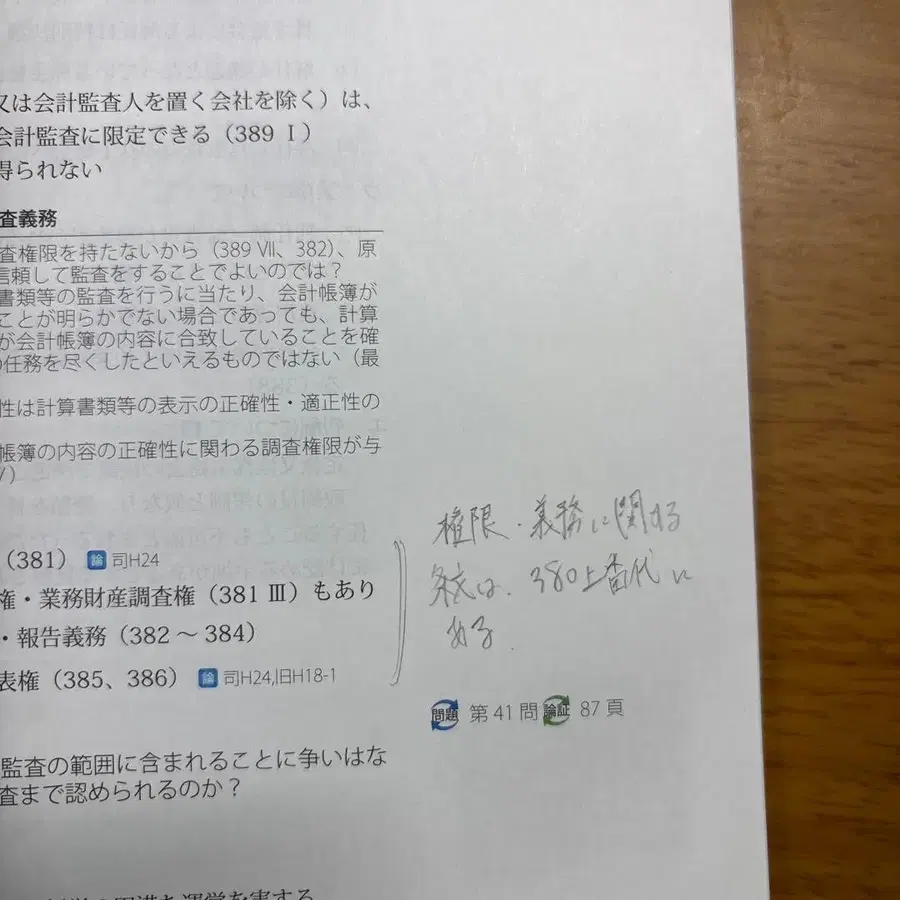 又は会計監査人を置く会社を除く）は、
会計監査に限定できる（389 Ⅰ）
得られない
査義務
査権限を持たないから（389 Ⅶ、382）、原
信頼して監査をすることでよいのでは？
書類等の監査を行うに当たり、会計帳簿が
ことが明らかでない場合であっても、計算
が会計帳簿の内容に合致していることを確
の任務を尽くしたといえるものではない（最
性は計算書類等の表示の正確性・適正性の
帳簿の内容の正確性に関わる調査権限が与
）
（381） 論 司H24
権・業務財産調査権（381 Ⅲ）もあり
・報告義務（382 〜 384）
表権（385、386） 論 司H24,旧H18-1
権限・義務に関する
条文は、380上番代に
ある.
問題 第 41 問 論証 87 頁
監査の範囲に含まれることに争いはな
査まで認められるのか？